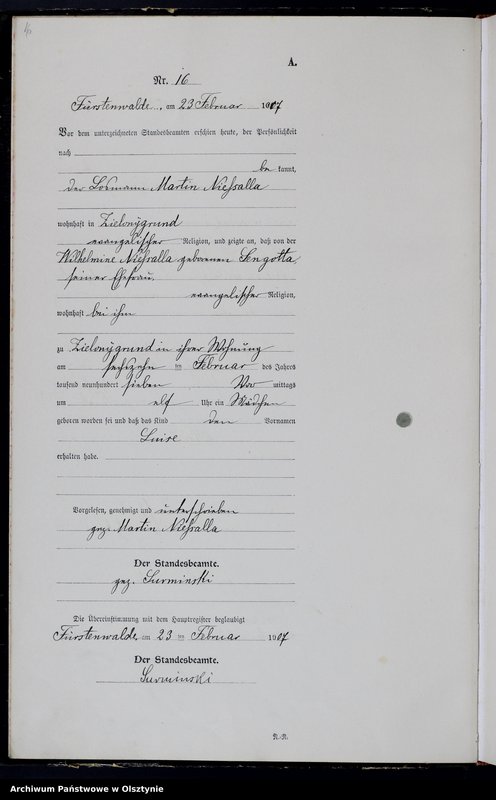 A.
Nr. 16
Fürstenwalde, am 23 Februar 1907
Vor dem unterzeichneten Standesbeamten erschien heute, der Persönlichkeit
nach
be kannt,
der Losmann Martin Nießalla
wohnhaft in Zielonygrund
evangelischer Religion, und zeigte an, daß von der
Wilhelmine Nießalla geborenen Sengotta,
seiner Ehefrau,
evangelischer Religion,
wohnhaft bei ihm
zu Zielonygrund in ihrer Wohnung
am sechszehn ten Februar des Jahres
tausend neunhundert sieben Vor mittags
um elf Uhr ein Mädchen
geboren worden sei und daß das Kind den Vornamen
Luise
erhalten habe.
Vorgelesen, genehmigt und unterschrieben
gez. Martin Nießalla
Der Standesbeamte.
gez. Surminski
Die Übereinstimmung mit dem Hauptregister beglaubigt
Fürstenwalde, am 23 ten Februar 1907
Der Standesbeamte.
Surminski
Archiwum Państwowe w Olsztynie